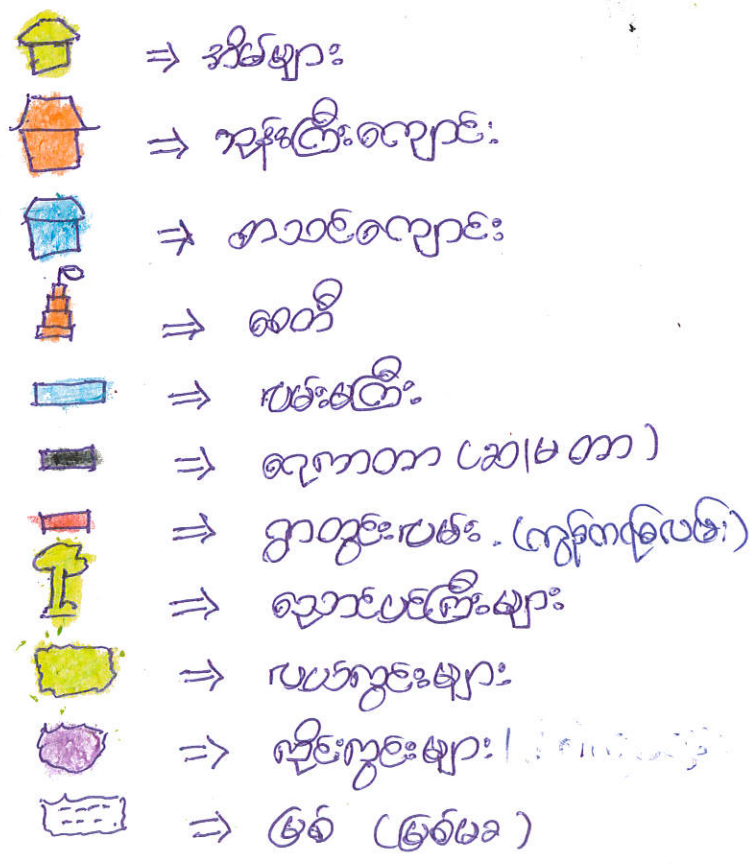 ⇒ အိမ်များ
⇒ ဘုန်းကြီးကျောင်း
⇒ စာသင်ကျောင်း
⇒ စေတီ
⇒ လမ်းမကြီး
⇒ ရေကာတာ (ဆ/မ တာ)
⇒ ရွာတွင်းလမ်း . (ကွန်ကရစ်လမ်း)
⇒ ညောင်ပင်ကြီးများ
⇒ လယ်ကွင်းများ
⇒ ကိုင်းကွင်းများ
⇒ မြစ် (မြစ်မခ)